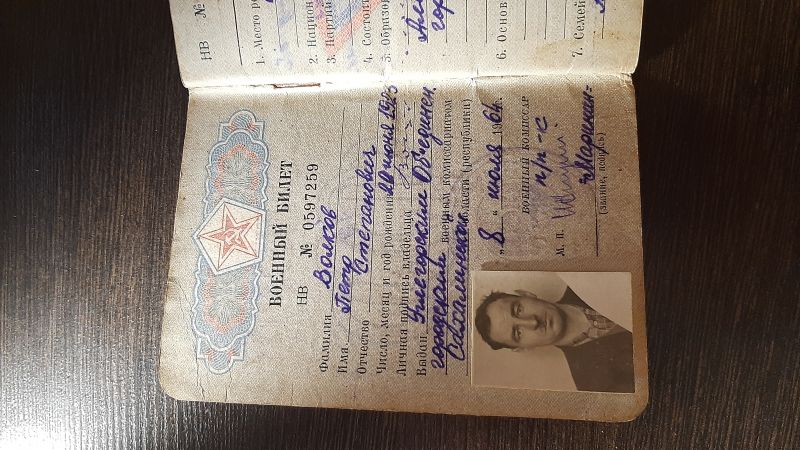 ВОЕННЫЙ БИЛЕТ
НВ № 0597259
Фамилия Волков
Имя Петр
Отчество Степанович
Число, месяц и год рождения 20 июня 1923
Личная подпись владельца
Выдан Углегорским Объединен.
городским военным комиссариатом
Сахалинской области (республики)
"8" июля 1964 г.
ВОЕННЫЙ КОМИССАР
п/п-к
М. П.
(звание, подпись)
НВ №
1. Место
2. Национ
3. Партий
4. Состои
5. Образо
6. Основ
7. Семей